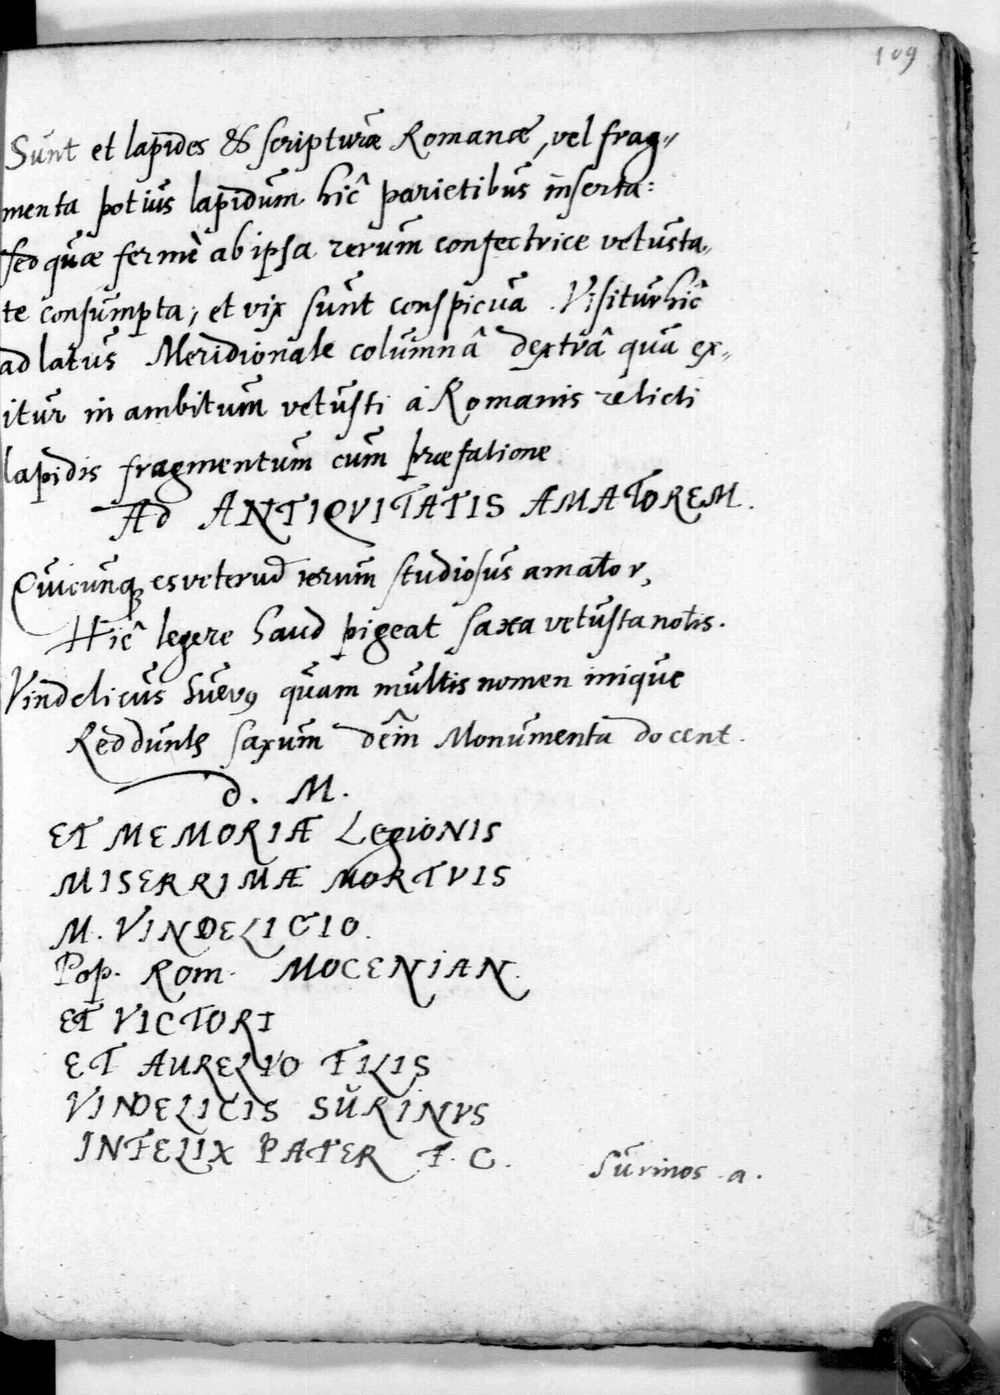 109
Sunt et lapides & scripturæ Romanæ, vel frag-
menta potius lapidum hic parietibus inserta:
sed quæ fermè ab ipsa rerum confectrice vetusta-
te consumpta, et vix sunt conspicua. Visitur hîc
ad latus Meridionale columnâ dextrâ qua ex-
itur in ambitum vetusti à Romanis relicti
lapidis fragmentum cum præfatione
Ad ANTIQVITATIS AMATOREM.
Quicunq; es veterum rerum studiosus amator,
Hîc legere haud pigeat saxa vetusta notis.
Vindelicus Suevus quam multis nomen inique
Reddunt saxum Monumenta docent.
d. M.
ET MEMORIÆ LegioNIS
MISERRIMÆ MORTVIS
M. VINDELICIO.
Pop. Rom. MOCENIAN.
ET VICTORI
ET AURELIO FILIS
VINDELICIS SŬRINVS
INFELIX PATER F. C.
Surinos a.